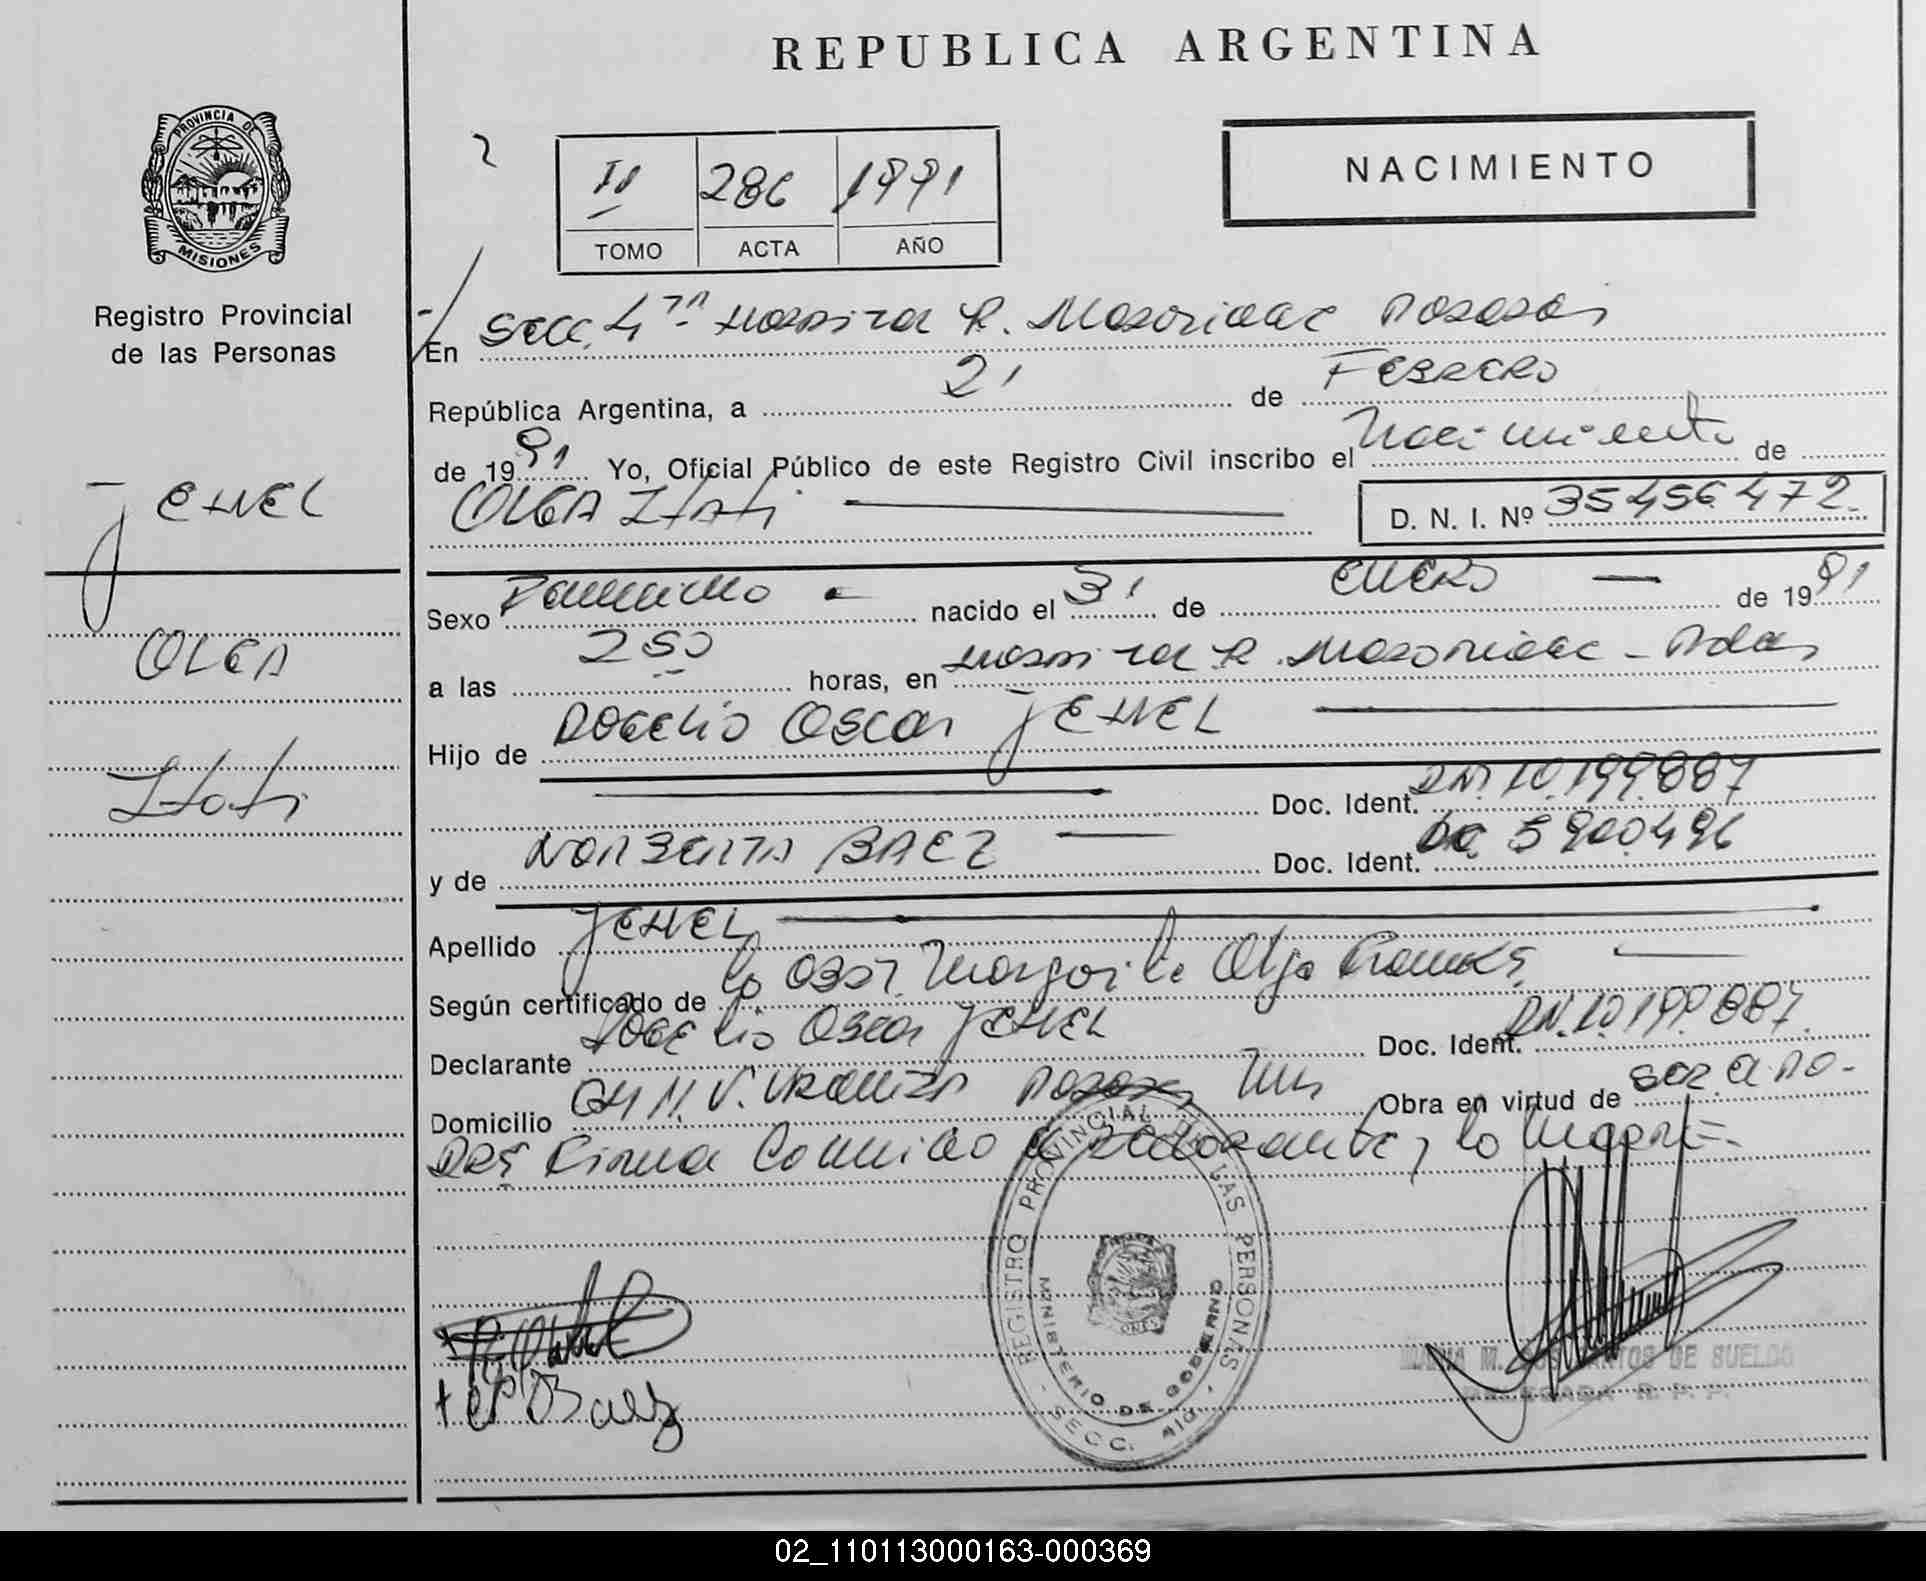 REPUBLICA ARGENTINA
PROVINCIA DE
MISIONES
Registro Provincial
de las Personas
II 286 1991
TOMO ACTA AÑO
NACIMIENTO
En Secc. 4ta Hospital R. Madariaga Posadas
República Argentina, a 21 de FEBRERO
de 1991 Yo, Oficial Público de este Registro Civil inscribo el Nacimiento de
OLGA Itati
D. N. I. Nº 35.456.472
JEHNEL
OLGA
Itati
Sexo Femenino nacido el 31 de ENERO de 1991
a las 250 horas, en Hospital R. Madariaga - Pdas
Hijo de ROGELIO OSCAR JEHNEL
Doc. Ident. DNI. 10.199.887
y de NORBERTA BAEZ Doc. Ident. LC 5900496
Apellido JEHNEL
Según certificado de la Obst. Margarita Olga
Declarante ROGELIO OSCAR JEHNEL Doc. Ident. DNI. 10.199.887
Domicilio CH N. V. Mns Obra en virtud de
Firma el declarante y la Madre =
REGISTRO PROVINCIAL DE LAS PERSONAS
MINISTERIO DE GOBIERNO
SECC.
+ Baez
MARIA M. DOS SANTOS DE SUELDO
DELEGADA R. P. P.
02_110113000163-000369